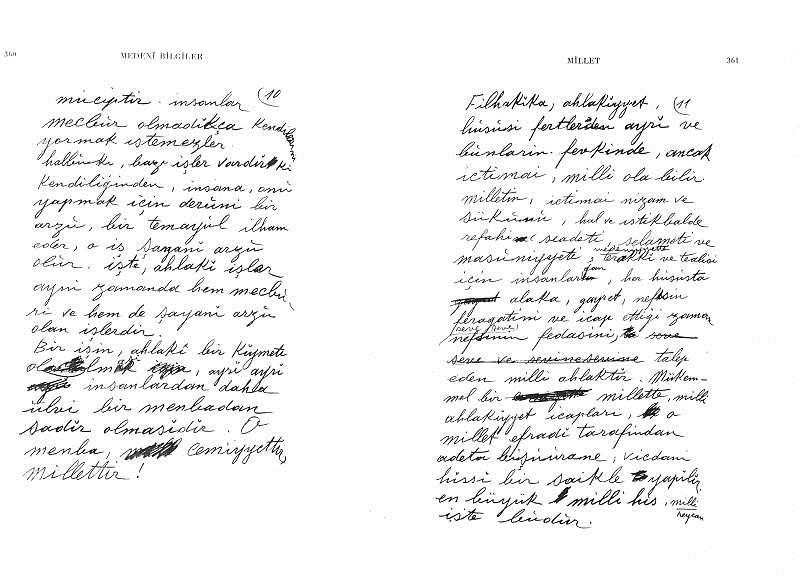 360
MEDENÎ BİLGİLER
müciptir. insanlar (10
mecbur olmadikça kendilerini
yormak istemezler.
halbuki, bazı işler vardır ki
Kendiliğinden, insana, onu
yapmak için deruni bir
arzu, bir temayül ilham
eder, o iş şayanı arzu
olur. işte, ahlaki işler
ayni zamanda hem mecbu-
ri ve hem de şayani arzu
olan işlerdir.
Bir işin, ahlaki bir kiymeti
olması, ayri ayri
insanlardan daha
ulvi bir menbadan
sadir olmasidir. O
menba, cemiyettir,
millettir!
MİLLET
361
Filhakika, ahlakiyyet, (11
hususi fertlerden ayri ve
bunlarin fevkinde, ancak
ictimai, milli ola bilir
milletin, ictimai nizam ve
sükunu, hal ve istikbalde
refahi seadeti, selameti ve
masuniyyeti, medeniyyette terakki ve tealisi
için insanlardan, her hususta
alaka, gayret, nefsin
feragatini ve icap ettiği zaman
seve seve nefsinin fedasini,
talep
eden milli ahlaktir. Mükem-
mel bir millette, milli
ahlakiyyet icaplari, o
millet efradi tarafindan
adeta
vicdani
hissi bir saikle yapilir.
en büyük milli his, milli
heyecan
işte budur.